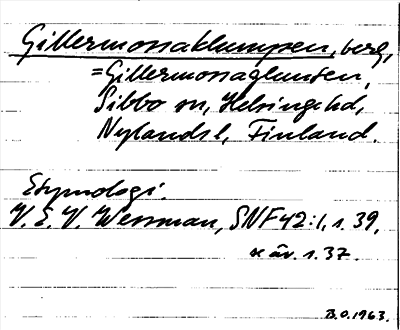 Gillermossaklumpen, berg,
= Gillermossaglunten,
Sibbo sn, Helsinge hd,
Nylands l, Finland.
Etymologi.
V. E. V. Wessman, SNF 42:1, s. 39,
äv. s. 37.
B.O. 1963.